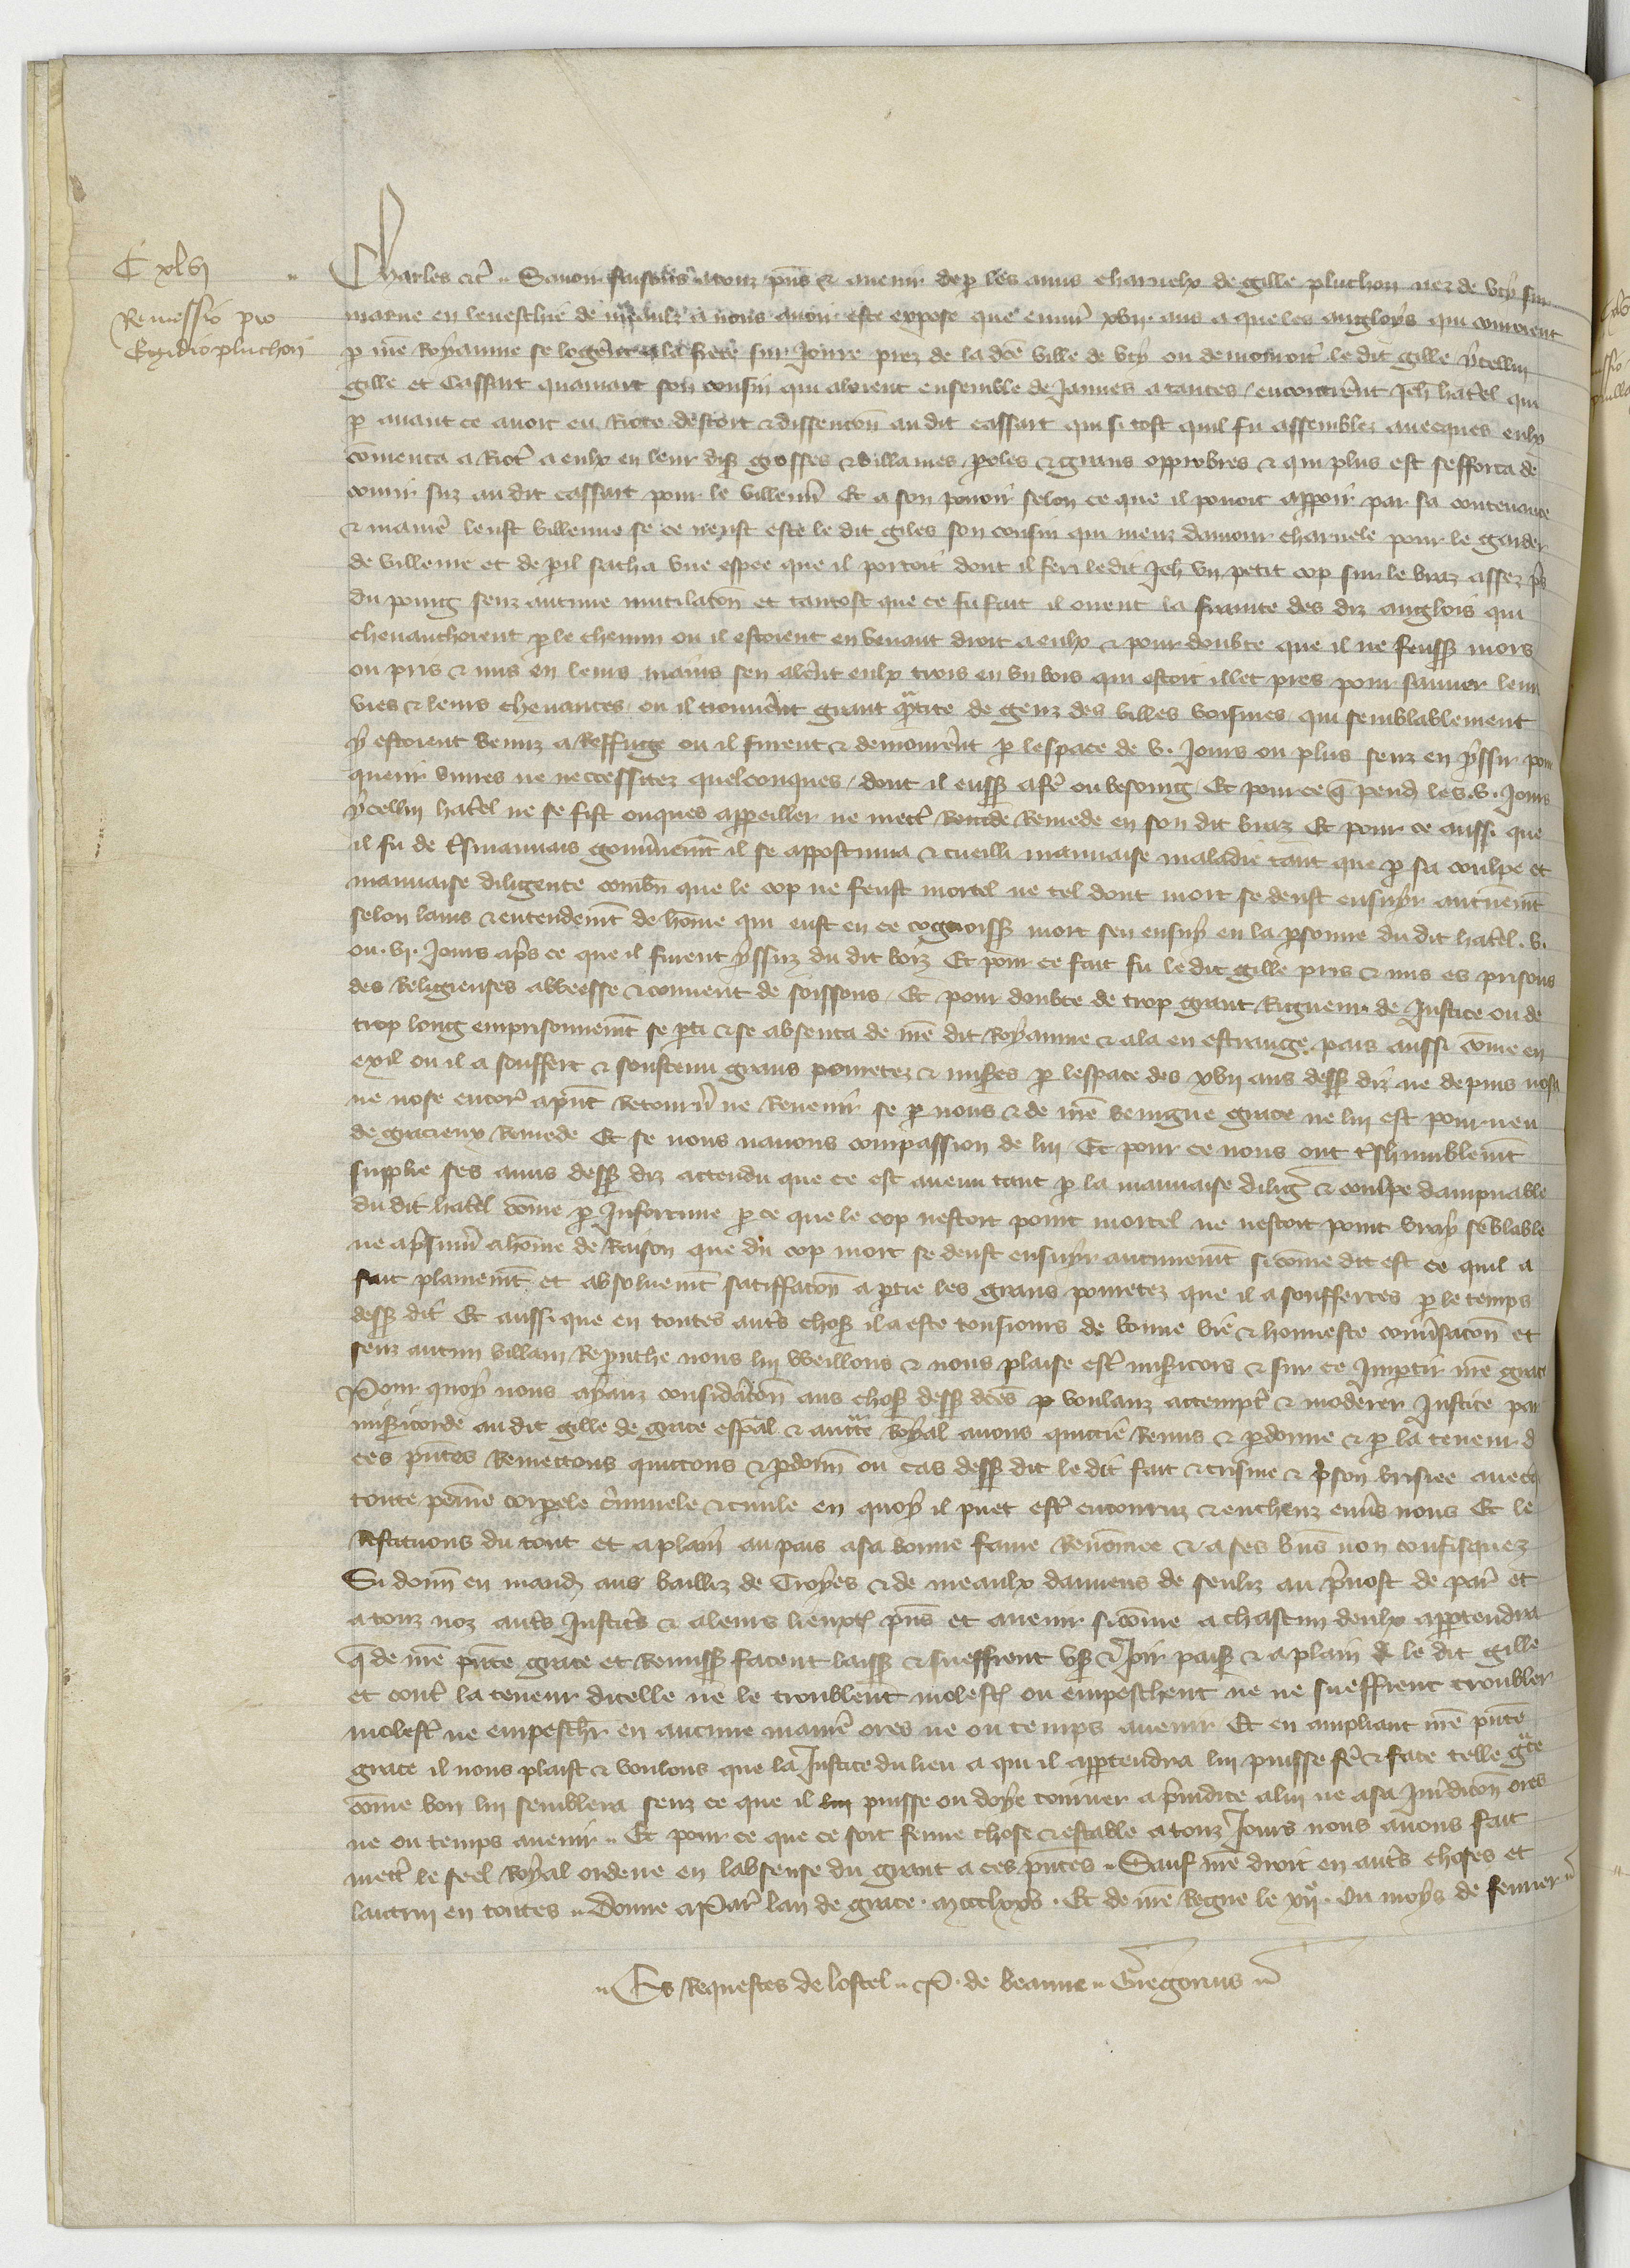 C xlvi
Remissio pro
Egidio pluchon
Charles etc̃ Savoir faisons a touz p̃ns & avenir de p̱ les amis charnelx de gille pluchon nez de Ucy sur
marne en leveschie de meaulz a nous avoir este expose que envirõ xvii ans a que les angloys qui couroient
p̱ nr̃e Royaume se logẽrent a la fierte sur Jouire prez de la dc̃e ville de Ucy ou demouroit le dit gille ycellui
gille et Cassart quamart son cousin qui aloient ensemble de Jaunes a tances / encontrẽrent Jeh̃ hatel qui
p̱ avant ce avoit eu Riote destort & dissencoñ au dit cassart qui si tost quil fu assemblez avecques eulx
cõmenca a Riot̃ a eulx en leur dis̃ grosses & villaines p̱oles & grans opprobres & qui plus est sefforca de
courir suz au dit cassart pour le villenñ Et a son povoir selon ce que il povoit apparoir par sa contenance
& maniẽ leust villenne se ce neust este le dit giles son cousin qui meuz damour charnele pour le garder
de villenie et de p̱il sacha une espee que il portoit dont il feri ledit Jeh̃ un petit cop sur le braz assez p̃s
du poing senz aucune mutilacoñ et tantost que ce fu fait il oirent la frainte des diz anglois qui
chevauchoient p̱ le chemin ou il estoient en venant droit a eulx & pour doubte que il ne feuss̃ mors
ou pris & mis en leurs mains sen alẽrent eulx trois en un bois qui estoit illec pres pour sauver leur
vies & leurs chevances ou il trouvẽrent grant q̃ntite de genz des villes voisines qui semblablement
y estoient venuz a Reffuge ou il furent & demourẽrent p̱ lespace de v. Jours ou plus senz en yssir pour
querir vivres ne neccessitez quelconques / dont il euss̃ a fẽ ou besoing Et pour ce q̃ pend̃ les .v. Jours
ycellui hatel ne se fist onques appeiller ne mect̃ Remede en son dit braz Et pour ce aussi que
il fu de t̃smauvais gouv̓nemt̃ il se appostuma & cueilli mauvaise maladie tant que p̱ sa coulpe et
mauvaise diligence combñ que le cop ne feust mortel ne tel dont mort se deust ensuyr aucunemt̃
selon lavis & entendemt̃ de hõme qui eust en ce cognoiss̃ mort sen ensuy en la p̱sonne du dit hatel .v.
ou .vi. Jours ap̃s ce que il furent yssuz du dit boiz Et pour ce fait fu le dit gille pris & mis es prisons
des Religieuses abbeesse & couvent de soissons Et pour doubte de trop grant Rigueur de Justice ou de
trop long emprisonnemt̃ se p̱ti & se absenta de nr̃e dit Royaume & ala en estrange pais aussi cõme en
exil ou il a souffert & soustenu grans povretez & miss̃es p̱ lespace des xvii ans dess̃ diz ne depuis nosa
ne nose encor̃ a p̃nt Retourñ ne Revenir se p̱ nous & de nr̃e benigne grace ne lui est pourveu
de gracieux Remede Et se nous navons compassion de lui Et pour ce nous ont t̃shumblemt̃
supplie ses amis dess̃ diz attendu que ce est avenu tant p̱ la mauvaise dilig̃ & coulpe dampnable
du dit hatel cõme p̱ Infortune p̱ ce que le cop nestoit point mortel ne nestoit point vray sẽblable
ne a p̃sumer a hõme de Raison que du cop mort se deust ensuyr aucunemt̃ si cõme dit est ce quil a
fait plainemt̃ et absoluemt̃ satiffacoñ a p̱tie les grans povretez que il a souffertes p̱ le temps
dess̃ dit Et aussi que en toutes aut̃s chos̃ il a este tousiours de bonne vie & honneste conv̓sacoñ et
senz aucun villain Reprouche nous lui weillons & nous plaise est̃ miss̃icors & sur ce Imp̱tir nr̃e grace
Pour quoy nous ayanz considacoñ aus chos̃ dess̃ dc̃es p̱ voulanz attemp̱ & moderer Justice par
miss̃icorde au dit gille de grace esp̃al & auct̃te Royal avons quictie Remis & p̱donne & p̱ la teneur d
ces p̃ntes Remettons quittons & p̱donñ ou cas dess̃ dit le dit fait & crisme & p̱son brisiee avec
toute peine corp̱ele c̃iminele & civile en quoy il puet est̃ encouruz & encheuz env̓s nous Et le
Restituons du tout et a plain au pais a sa bonne fame Renõmee & a ses bñs non confisquez
Si donñ en mand̃ aus bailliz de Troyes & de meaulx damiens de senliz au p̃vost de par̃ et
a touz noz aut̃s Justic̃s & a leurs lieuxt̃ p̃ns et avenir si cõme a chascun deulx app̱tendra
q̃ de nr̃e p̃nte grace et Remiss̃ facent laiss̃ & sueffrent us̃ & Joir pais̃ & a plain le dit gille
et cont̃ la teneur dicelle ne le troublent molest̃ ou empeschent ne ne sueffrent troubler
molest̃ ne empesch̃r en aucune maniẽ ores ne ou temps avenir Et en ampliant nr̃e p̃nte
grace il nous plaist & voulons que la Justice du lieu a qui il app̱tendra lui puisse fẽ & face telle g̃ce
cõme bon lui semblera senz ce que il puisse ou doye tourner a p̃iudice a lui ne a sa Juridicoñ ores
ne ou temps avenir Et pour ce que ce soit ferme chose & estable a touz Jours nous avons fait
mect̃ le seel Royal ordene en labsense du grant a ces p̃ntes Sauf nr̃e droit en aut̃s choses et
lautrui en toutes Donne a Par̃ lan de grace mccclxxv. Et de nr̃e Regne le xii͏ᵉ. Ou moys de fevrier
Es Requestes de lostel P. de beaune Gregorius